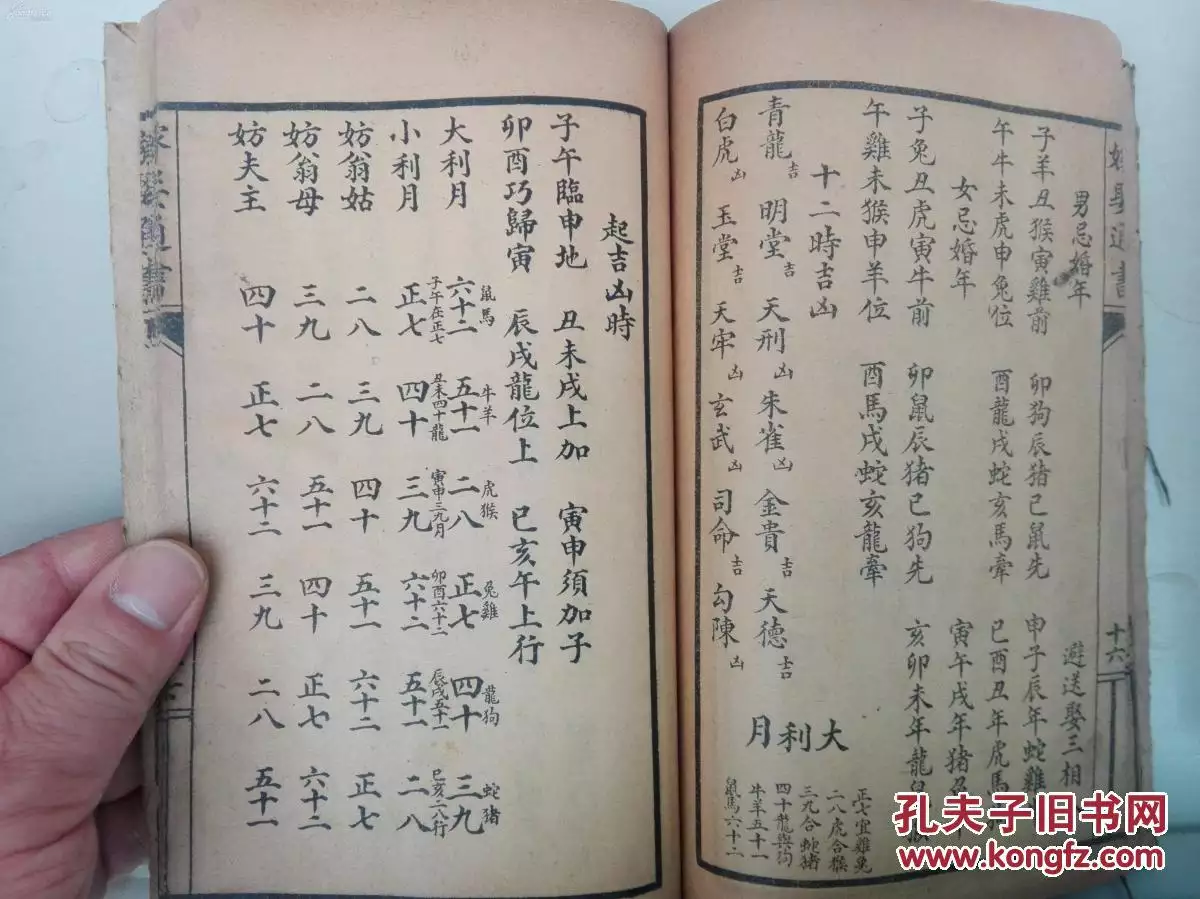 男忌婚年
子羊丑猴寅雞前 卯狗辰猪巳鼠先
午牛未虎申兔位 酉龍戌蛇亥馬牽
女忌婚年
子兔丑虎寅牛前 卯鼠辰猪巳狗先
午雞未猴申羊位 酉馬戌蛇亥龍牽
避送娶三相
申子辰年蛇雞
巳酉丑年虎馬
寅午戌年猪
亥卯未年龍鼠
十二時吉凶
青龍吉 明堂吉 天刑凶 朱雀凶 金貴吉 天德吉
白虎凶 玉堂吉 天牢凶 玄武凶 司命吉 勾陳凶
大利月
正七宜雞兔
二八虎合猴
三九合蛇猪
四十龍與狗
牛羊五十一
鼠馬六十二
十六
起吉凶時
子午臨申地 丑未戌上加 寅申須加子
卯酉巧歸寅 辰戌龍位上 巳亥午上行
鼠馬 牛羊 虎猴 兔雞 龍狗 蛇猪
大利月 六十二 五十一 二八 正七 四十 三九
子午在正七 丑未四十龍 寅申三九月 卯酉六十二 辰戌五十一 巳亥二八行
小利月 正七 四十 三九 六十二 五十一 二八
妨翁姑 二八 三九 四十 五十一 六十二 正七
妨翁母 三九 二八 五十一 四十 正七 六十二
妨夫主 四十 正七 六十二 三九 二八 五十一
孔夫子旧书网
www.kongfz.com